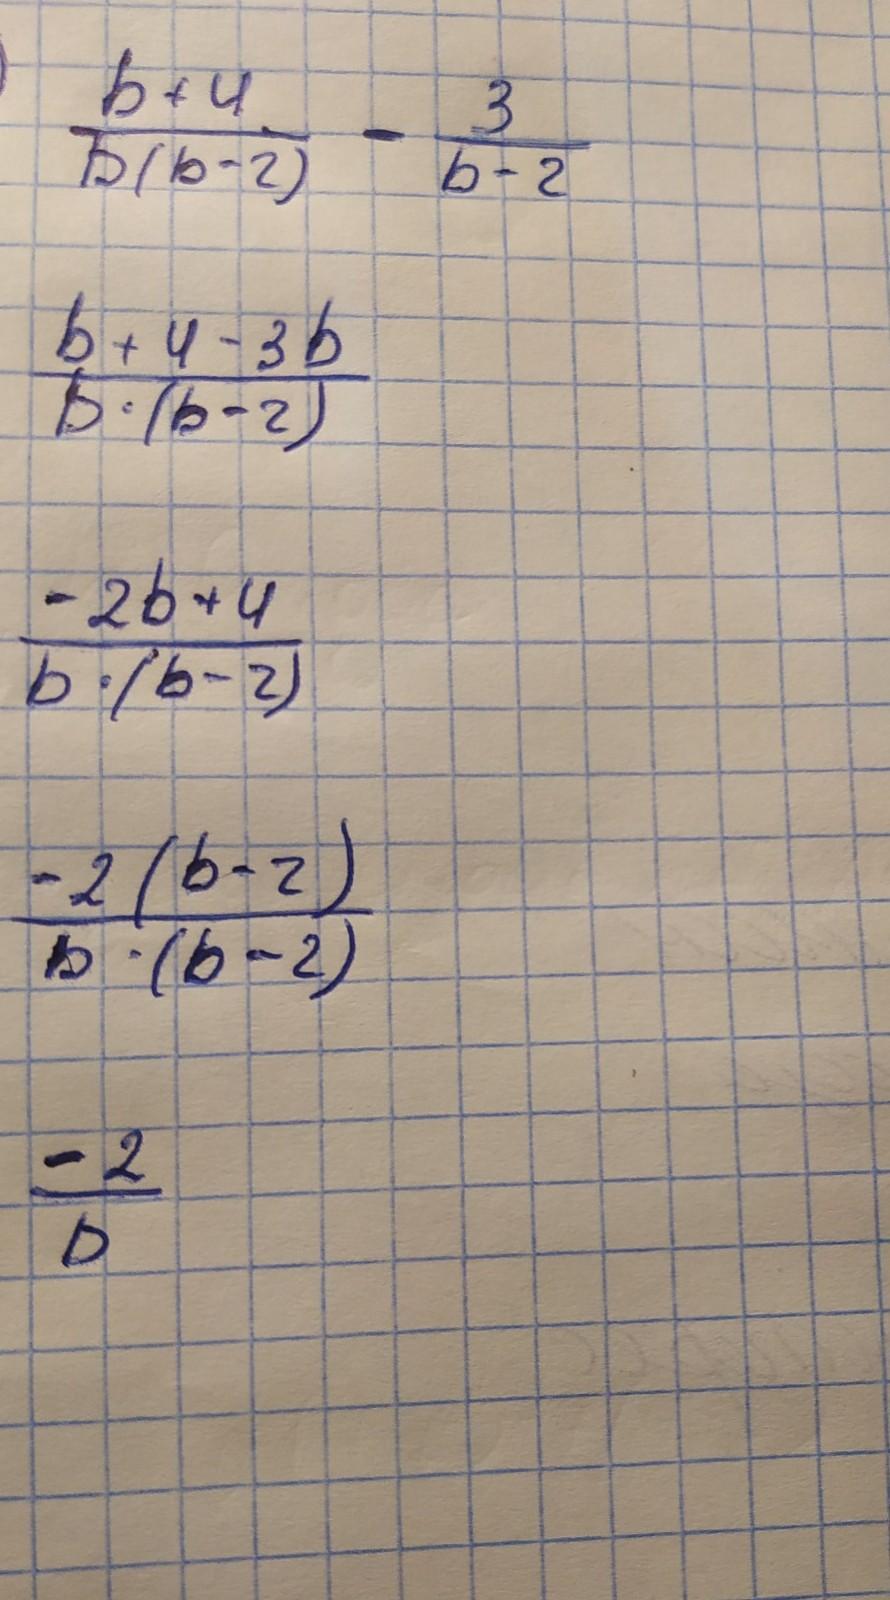 ) b+4 / b(b-2) - 3 / b-2
b+4-3b / b·(b-2)
-2b+4 / b·(b-2)
-2(b-2) / b·(b-2)
-2 / b